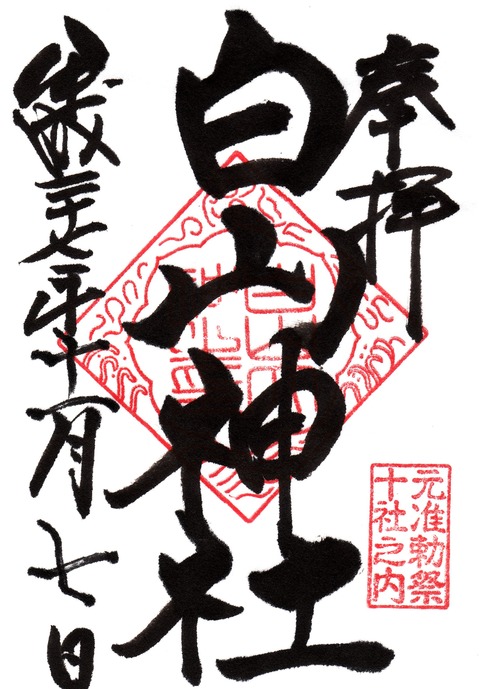 奉拝
元准勅祭
十社之内
白山神社
二十七年十一月七日